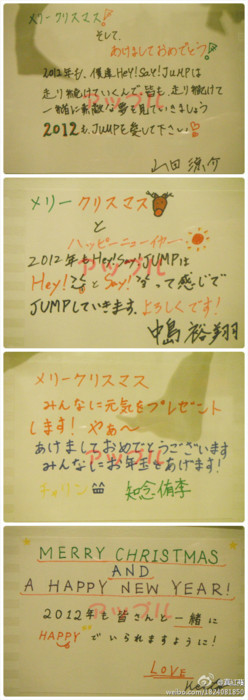 メリークリスマス!
そして、
あけましておめでとう!
2012年も、僕達Hey!Say!JUMPは
走り続けていくんで皆も、走り続けて
一緒に素敵な夢を見ていきましょう
2012もJUMPを愛して下さい
山田涼介
メリークリスマス
と
ハッピーニューイヤー
2012年もHey!Say!JUMPは
Hey! Say! って感じで
JUMPしていきます。よろしくです!
中島裕翔
メリークリスマス
みんなに元気をプレゼント
します! やぁ〜
あけましておめでとうございます
みんなにお年玉をあげます!
チョリン
知念侑李
MERRY CHRISTMAS
AND
A HAPPY NEW YEAR!
2012年も皆さんと一緒に
HAPPYでいられますように!
LOVE
アップル
アップル
アップル
アップル
weibo.com/1824081850